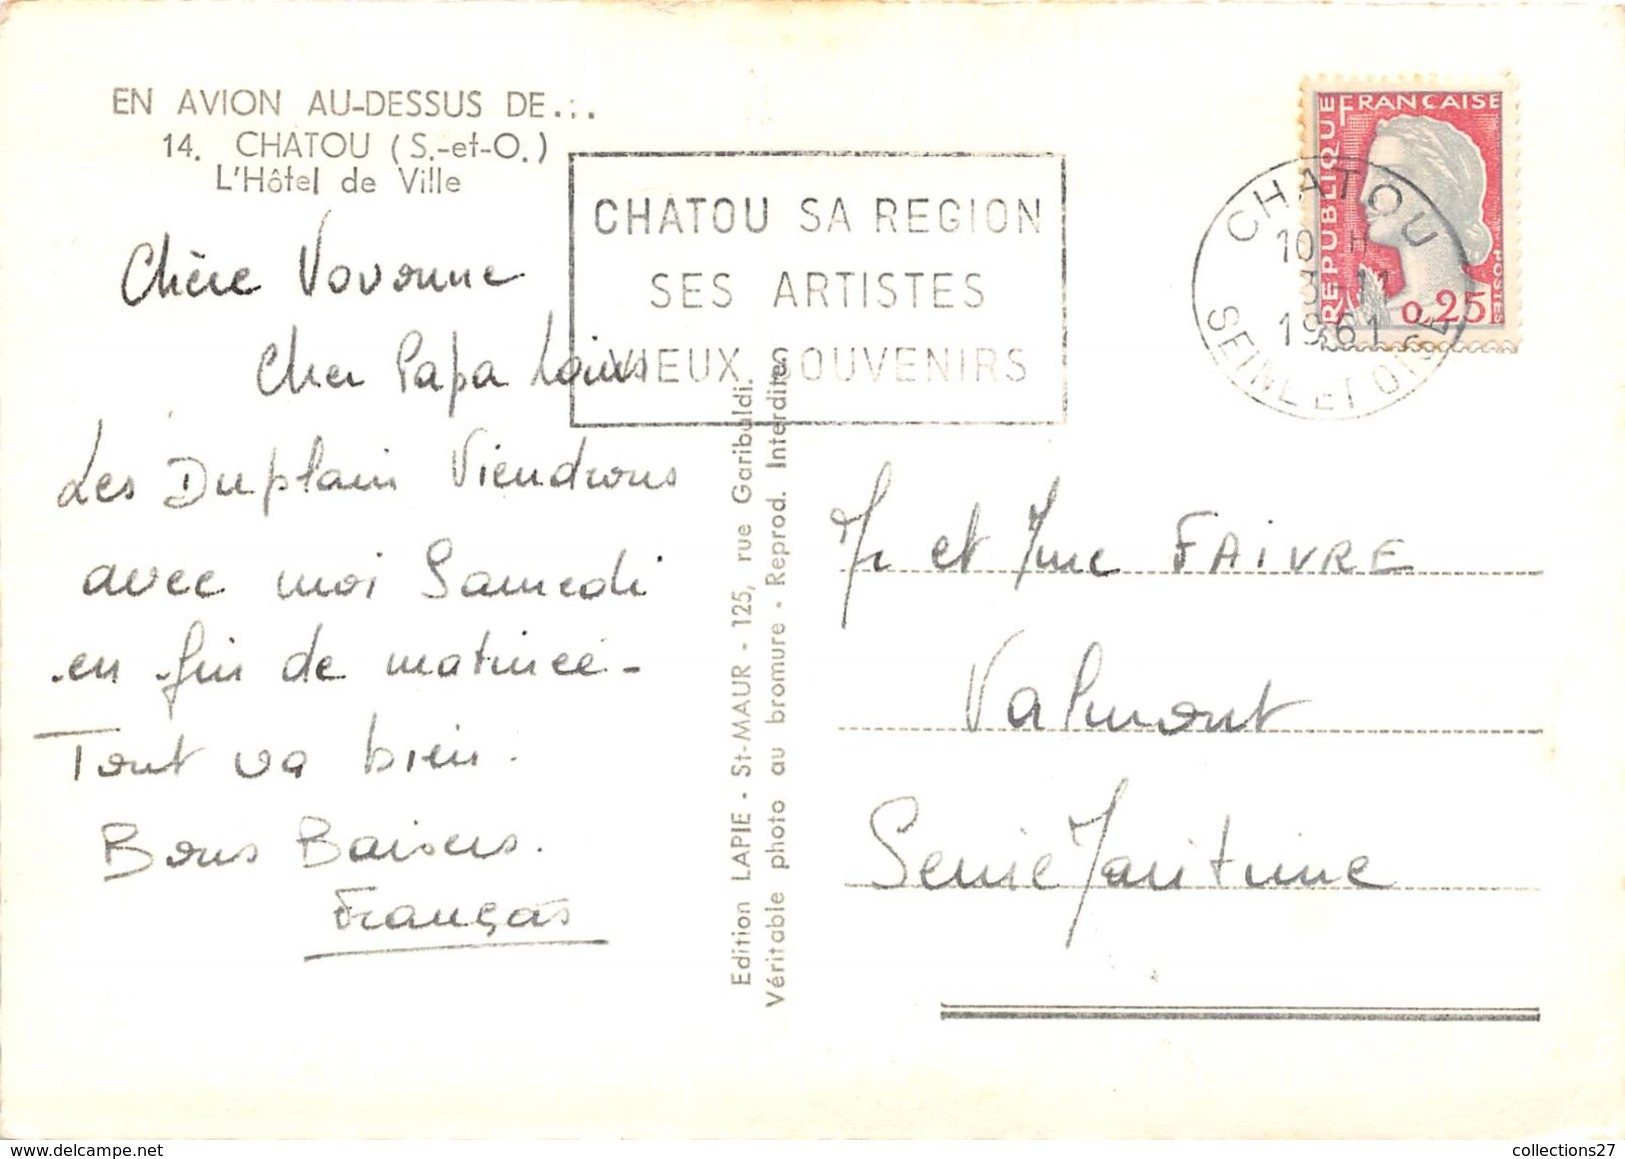 EN AVION AU-DESSUS DE...
14. CHATOU (S.-et-O.)
L'Hôtel de Ville
Chère Vovonne
Cher Papa Louis
Les Duplain Viendrons
avec moi Samedi
en fin de matinée -
Tout va bien.
Bons Baisers.
François
CHATOU SA REGION
SES ARTISTES
VIEUX SOUVENIRS
Edition LAPIE - St-MAUR - 125, rue Garibaldi.
Véritable photo au bromure - Reprod. Interdite.
REPUBLIQUE FRANÇAISE
POSTES
0,25
CHATOU
10 H
3-11
1961
SEINE ET OISE
Mr et Mme FAIVRE
Valmont
Seine Maritime
collections27